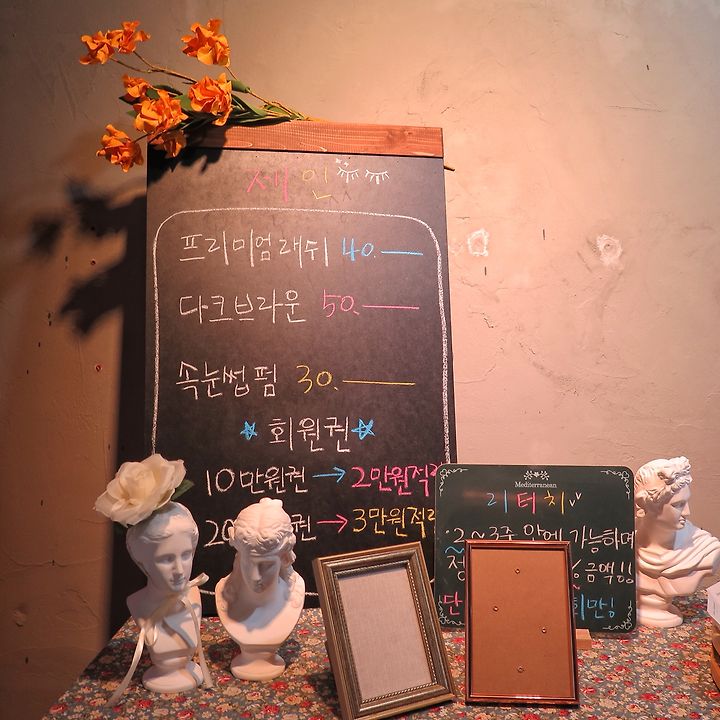 세인
프리미엄래쉬 40.
다크브라운 50.
속눈썹펌 30.
회원권
10만원권 → 2만원적
20 권 → 3만원적
Mediterranean
리터치
2~3주 안에 가능하며
금액!!